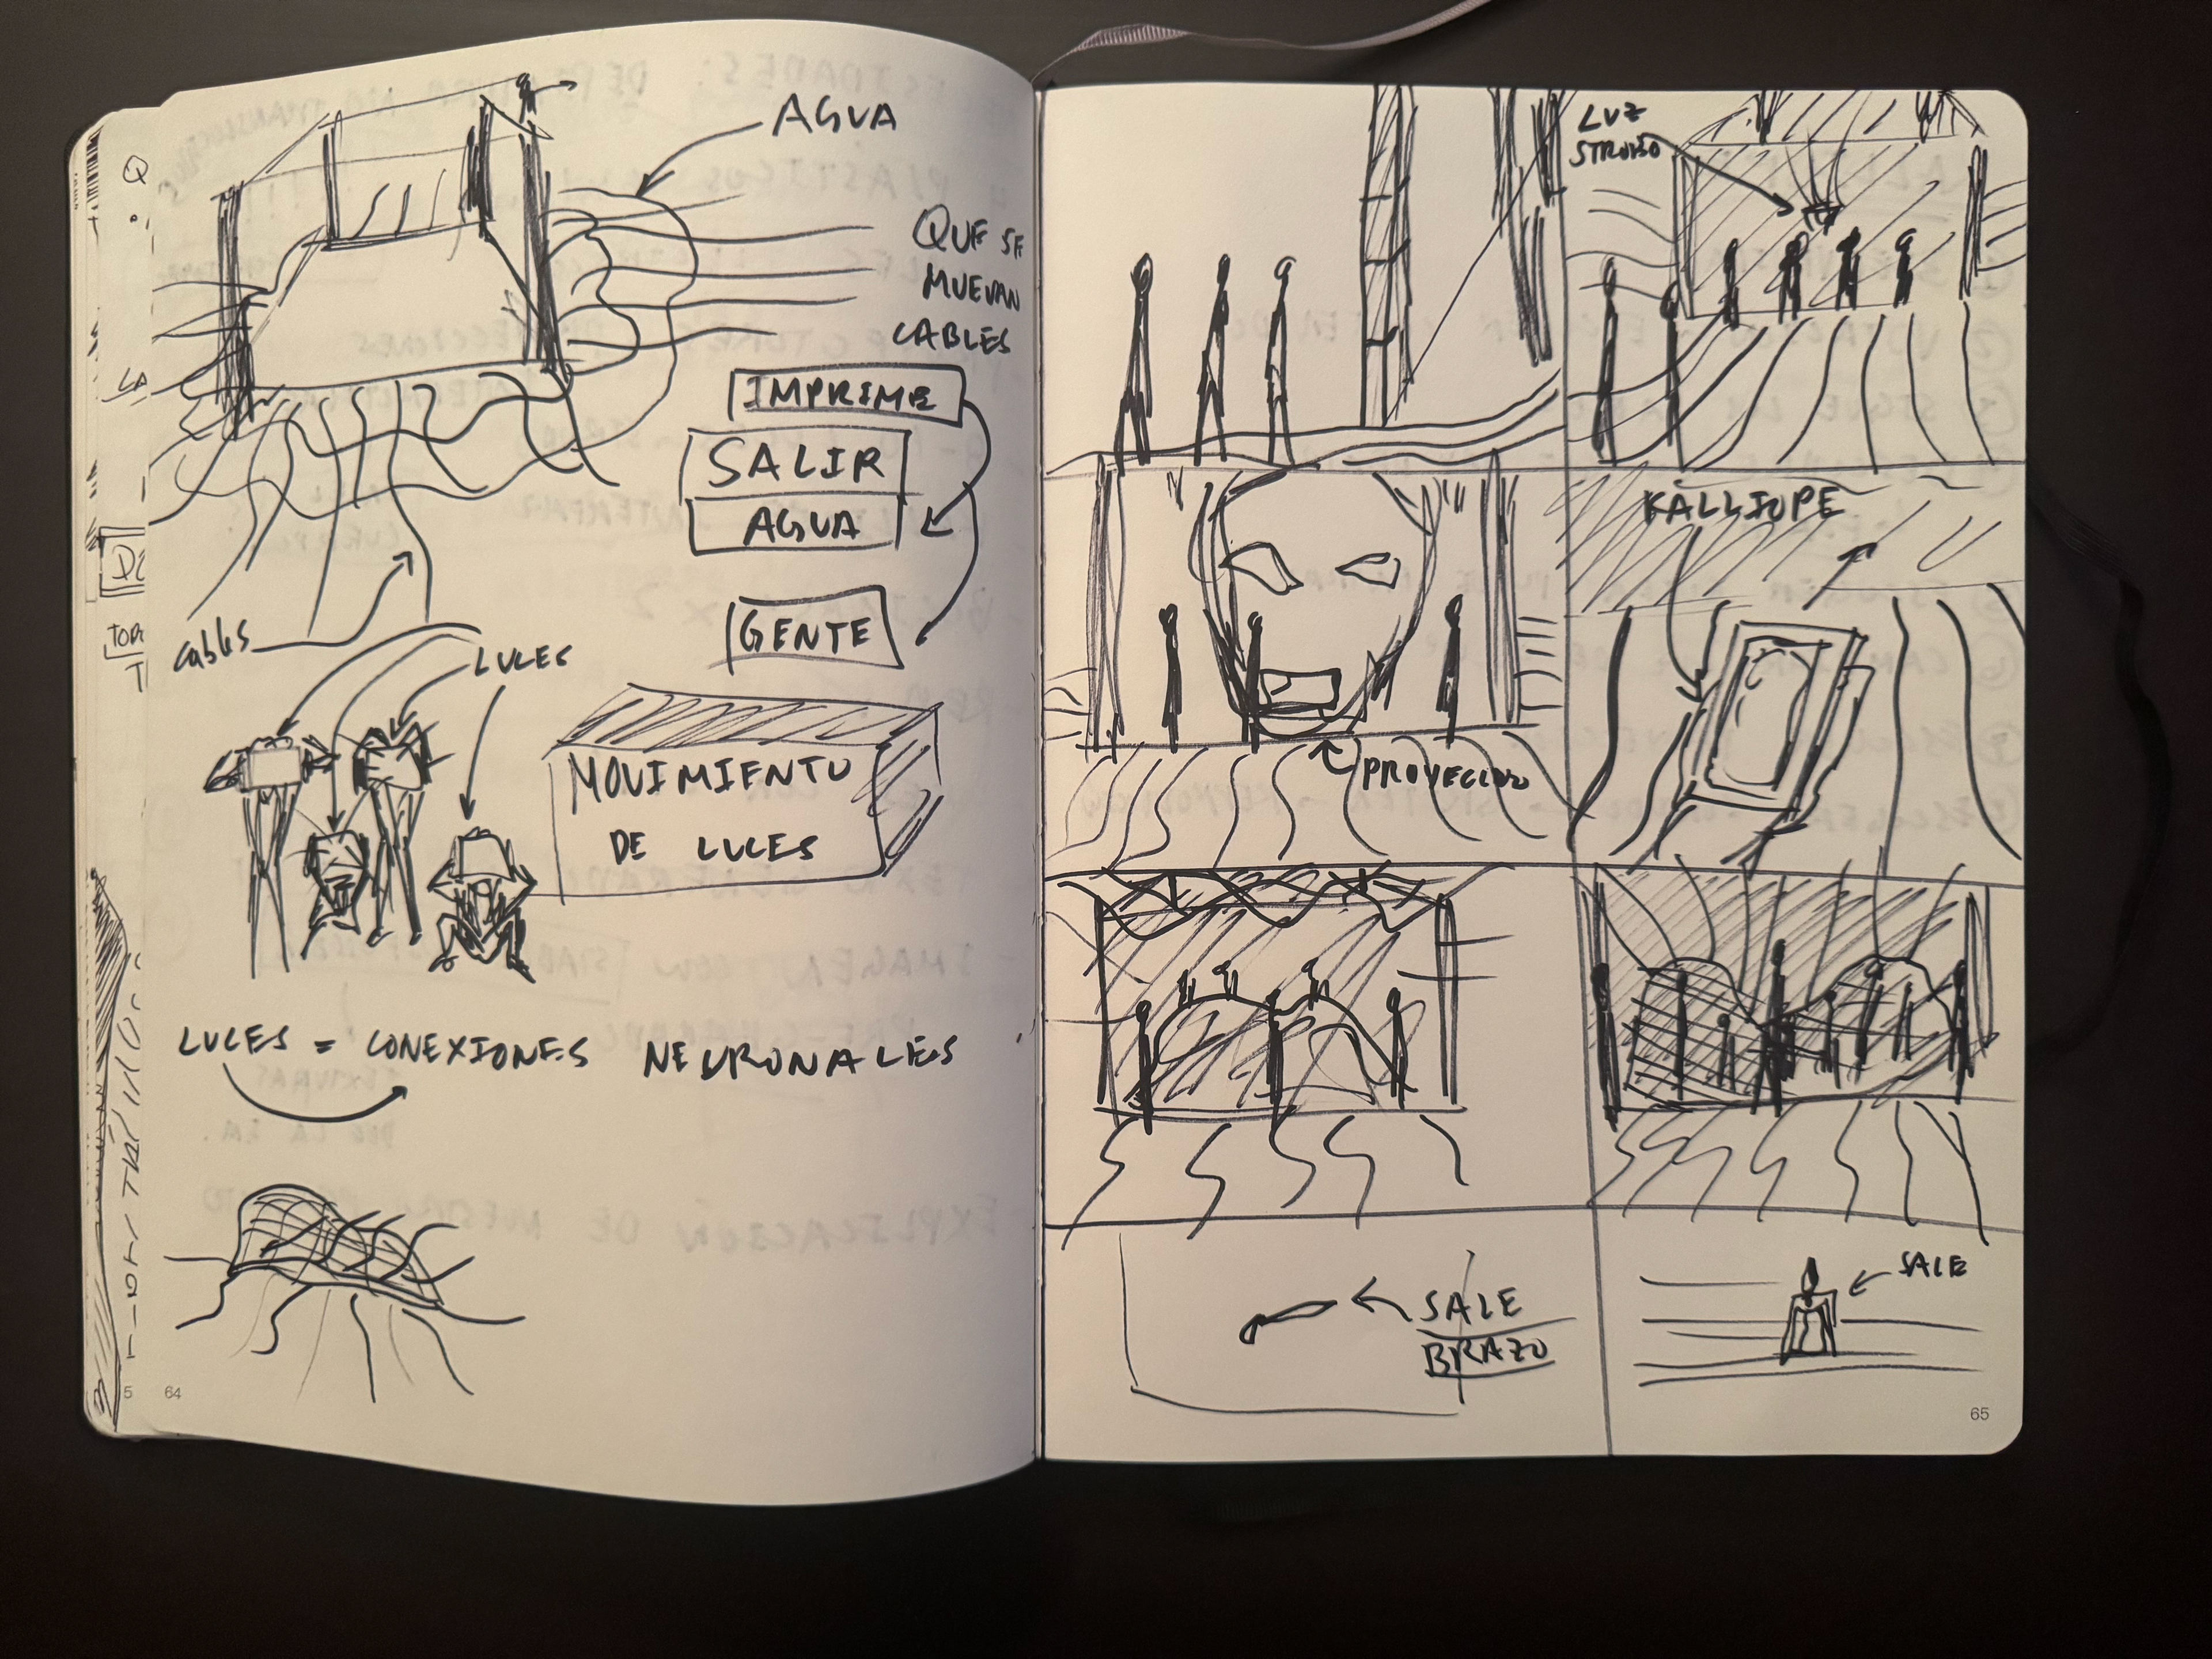 AGUA
QUE SE
MUEVAN
CABLES
IMPRIME
SALIR
AGUA
GENTE
cables
LUCES
MOVIMIENTO
DE LUCES
LUCES = CONEXIONES NEURONALES
5 64
LUZ
STROBO
KALLIOPE
PROYECCIÓN
SALE
BRAZO
SALE
65